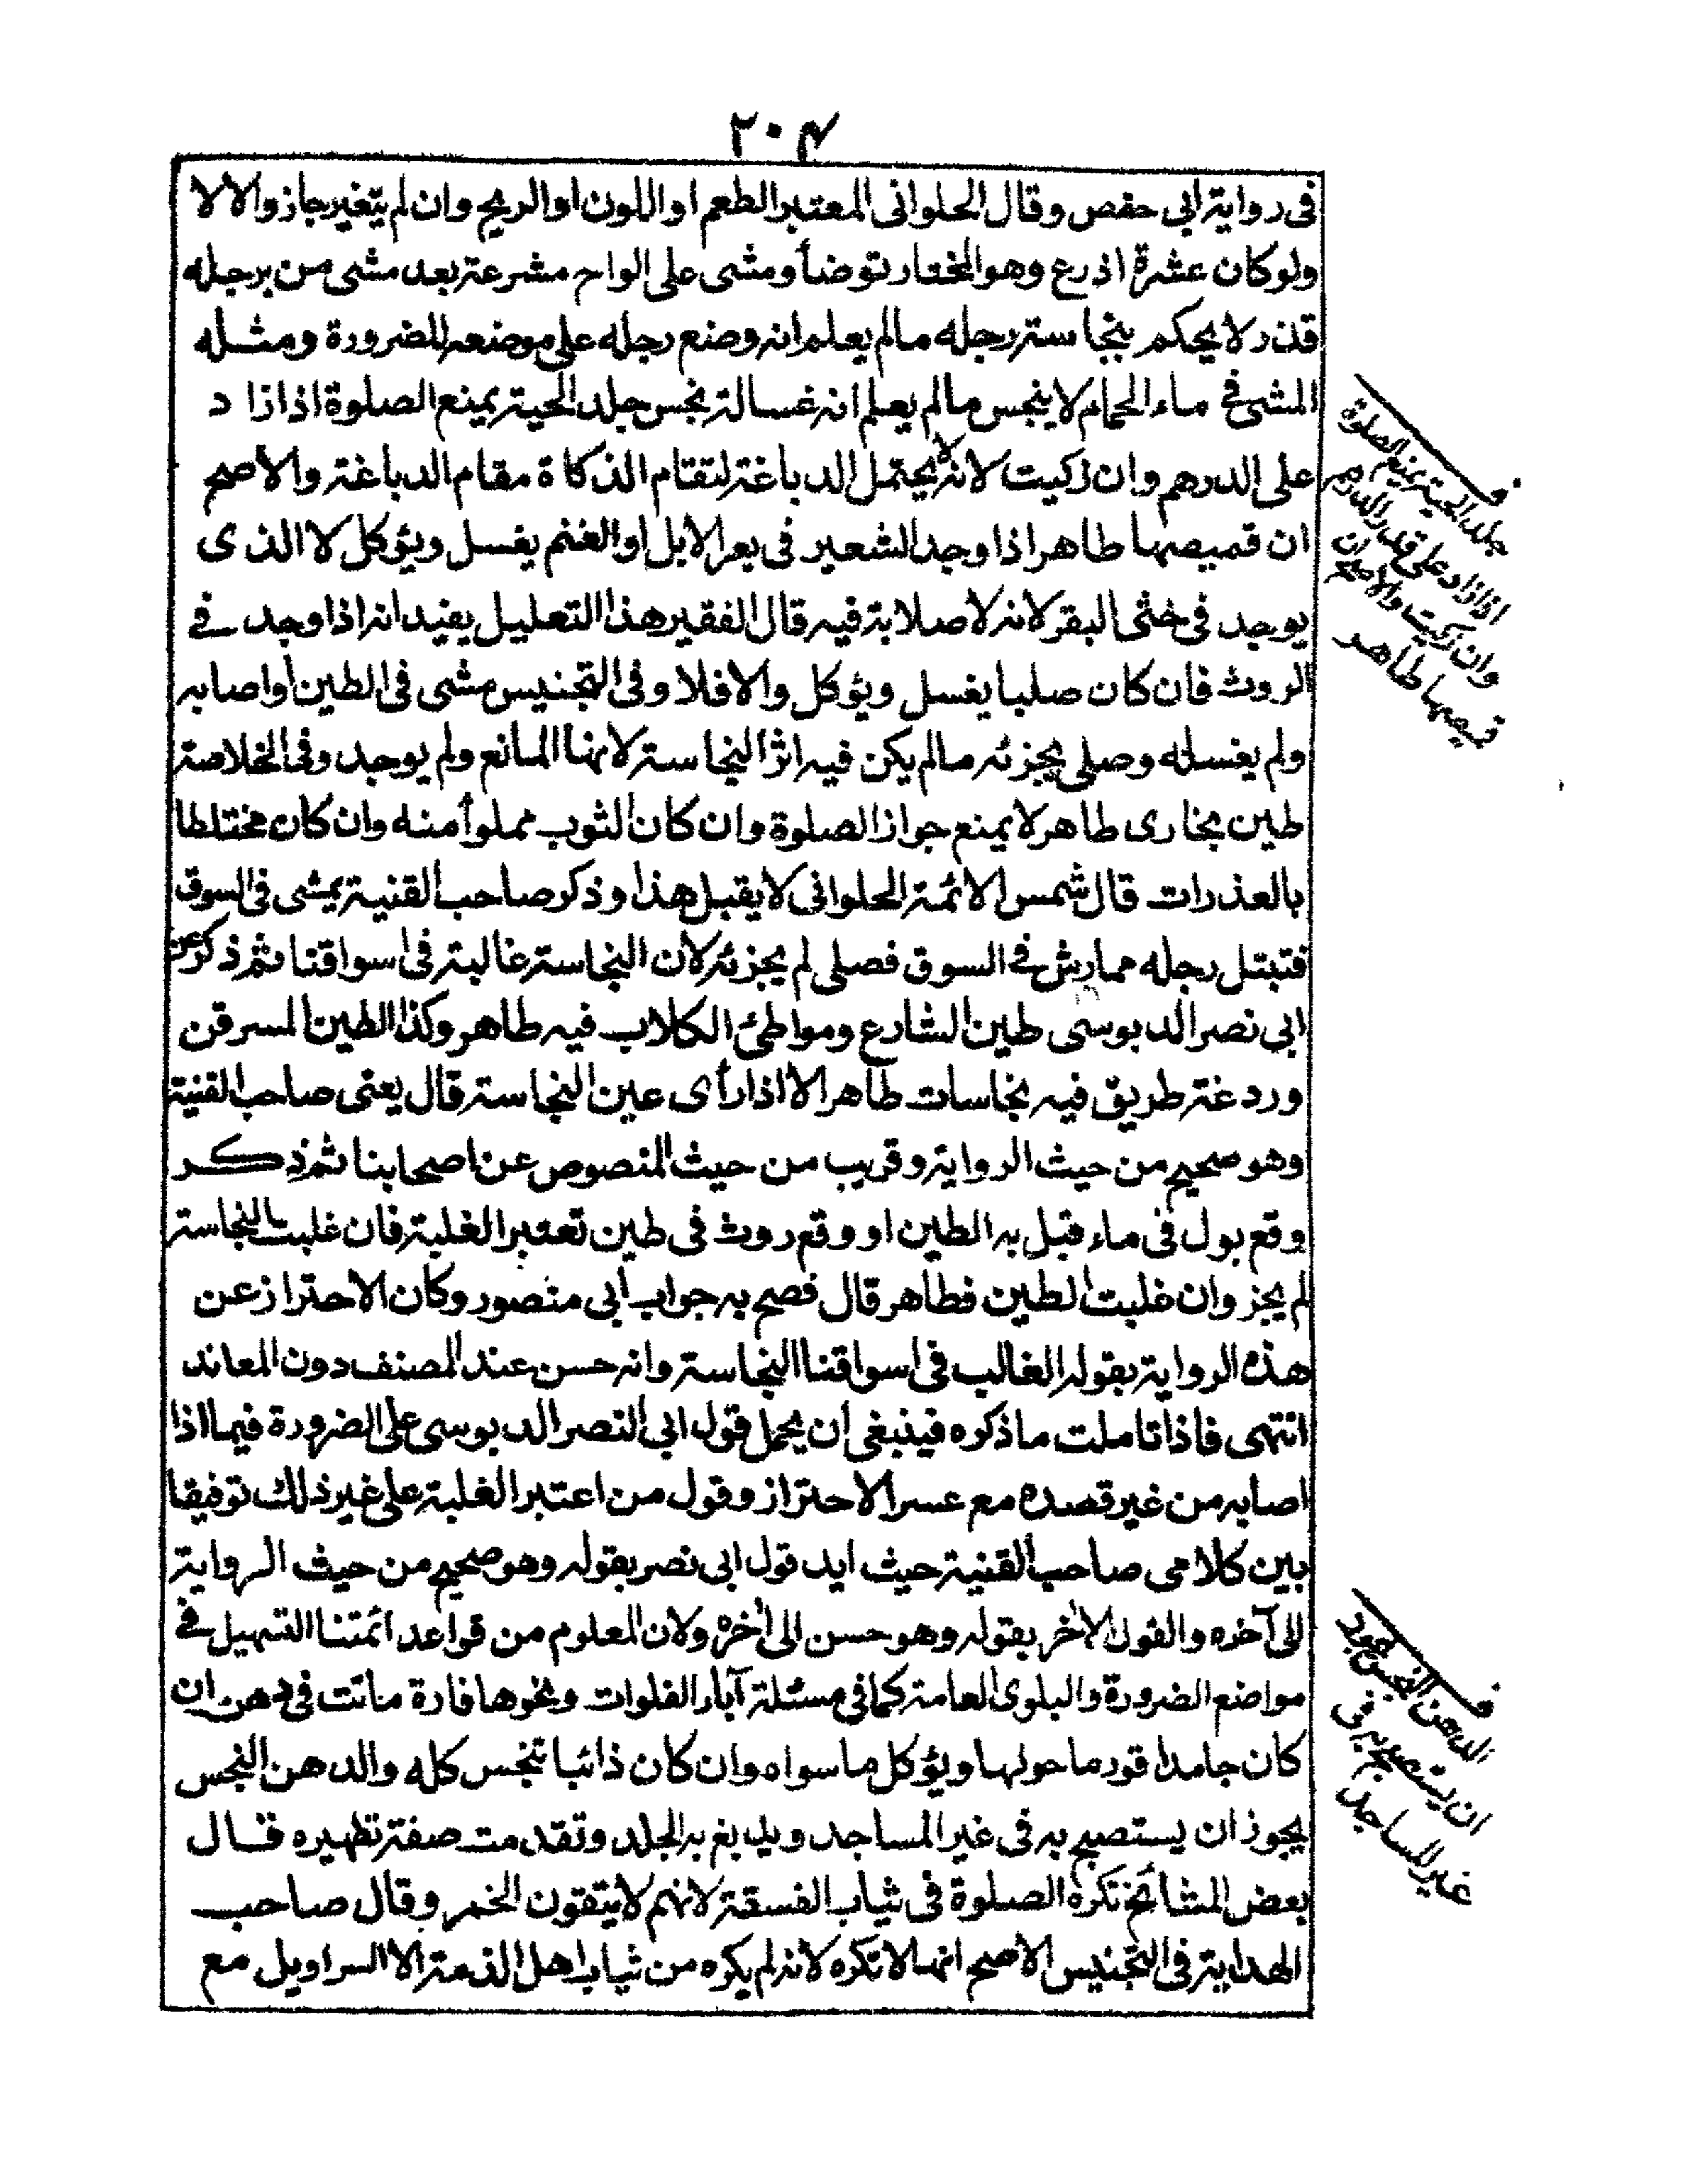 ٢٠٤
فى رواية ابى حفص وقال الحلوانى المعتبر الطعم او اللون او الريح وان لم يتغير جاز والا لا
ولو كان عشرة اذرع وهو المختار توضأ ومشى على الواح مشرعة بعد مشى من برجله
قذر لا يحكم بنجاسة رجله مالم يعلم انه وضع رجله على موضعه للضرورة ومثله
المشى فى ماء الحمام لا ينجس مالم يعلم انه غسالة نجس جلد الحية يمنع الصلوة اذا زاد
على الدرهم وان زكيت لانه لا يحتمل الدباغة لتقام الذكاة مقام الدباغة والاصح
ان قميصها طاهر اذا وجد الشعير فى بعر الابل او الغنم يغسل ويؤكل لا الذى
يوجد فى خثى البقر لانه لا صلابة فيه قال الفقير هذا التعليل يفيد انه اذا وجد فى
الروث فان كان صلبا يغسل ويؤكل والا فلا وفى التجنيس مشى فى الطين او اصابه
ولم يغسله وصلى يجزئه مالم يكن فيه اثر النجاسة لانها المانع ولم يوجد وفى الخلاصة
طين بخارى طاهر لا يمنع جواز الصلوة وان كان الثوب مملوأ منه وان كان مختلطا
بالعذرات قال شمس الائمة الحلوانى لا يقبل هذا وذكر صاحب القنية يمشى فى السوق
فتبتل رجله مما رش فى السوق فصلى لم يجزئه لان النجاسة غالبة فى اسواقنا ثم ذكر عن
ابى نصر الدبوسى طين الشارع ومواطئ الكلاب فيه طاهر وكذا الطين المسرقن
وردغة طريق فيه نجاسات طاهر الا اذا رأى عين النجاسة قال يعنى صاحب القنية
وهو صحيح من حيث الرواية وقريب من حيث المنصوص عن اصحابنا ثم ذكر
وقع بول فى ماء فبل به الطين او وقع روث فى طين تعتبر الغلبة فان غلبت النجاسة
لم يجز وان غلبت الطين فطاهر قال فصح به جواب ابى منصور وكان الاحتراز عن
هذه الرواية بقوله الغالب فى اسواقنا النجاسة وانه حسن عند المصنف دون المعاند
انتهى فاذا تاملت ما ذكره فينبغى أن يحمل قول ابى النصر الدبوسى على الضرورة فيما اذا
اصابه من غير قصده مع عسر الاحتراز وقول من اعتبر الغلبة على غير ذلك توفيقا
بين كلامى صاحب القنية حيث ايد قول ابى نصر بقوله وهو صحيح من حيث الرواية
الى آخره والقول الاخر بقوله وهو حسن الى أخره ولان المعلوم من قواعد ائمتنا التسهيل فى
مواضع الضرورة والبلوى العامة كما فى مسئلة آبار الفلوات ونحوها فارة ماتت فى دهن ان
كان جامدا قور ما حولها ويؤكل ما سواه وان كان ذائبا تنجس كله والدهن النجس
يجوز ان يستصبح به فى غير المساجد ويدبغ به الجلد وتقدمت صفة تطهيره قال
بعض المشائخ تكره الصلوة فى ثياب الفسقة لانهم لا يتقون الخمر وقال صاحب
الهداية فى التجنيس الاصح انها لا تكره لانه لم يكره من ثياب اهل الذمة الا السراويل مع
جلد الحية يمنع الصلوة
اذا زاد على قدر الدرهم
وان زكيت والاصح ان
قميصها طاهر
الدهن النجس يجوز
ان يستصبح به فى
غير المساجد